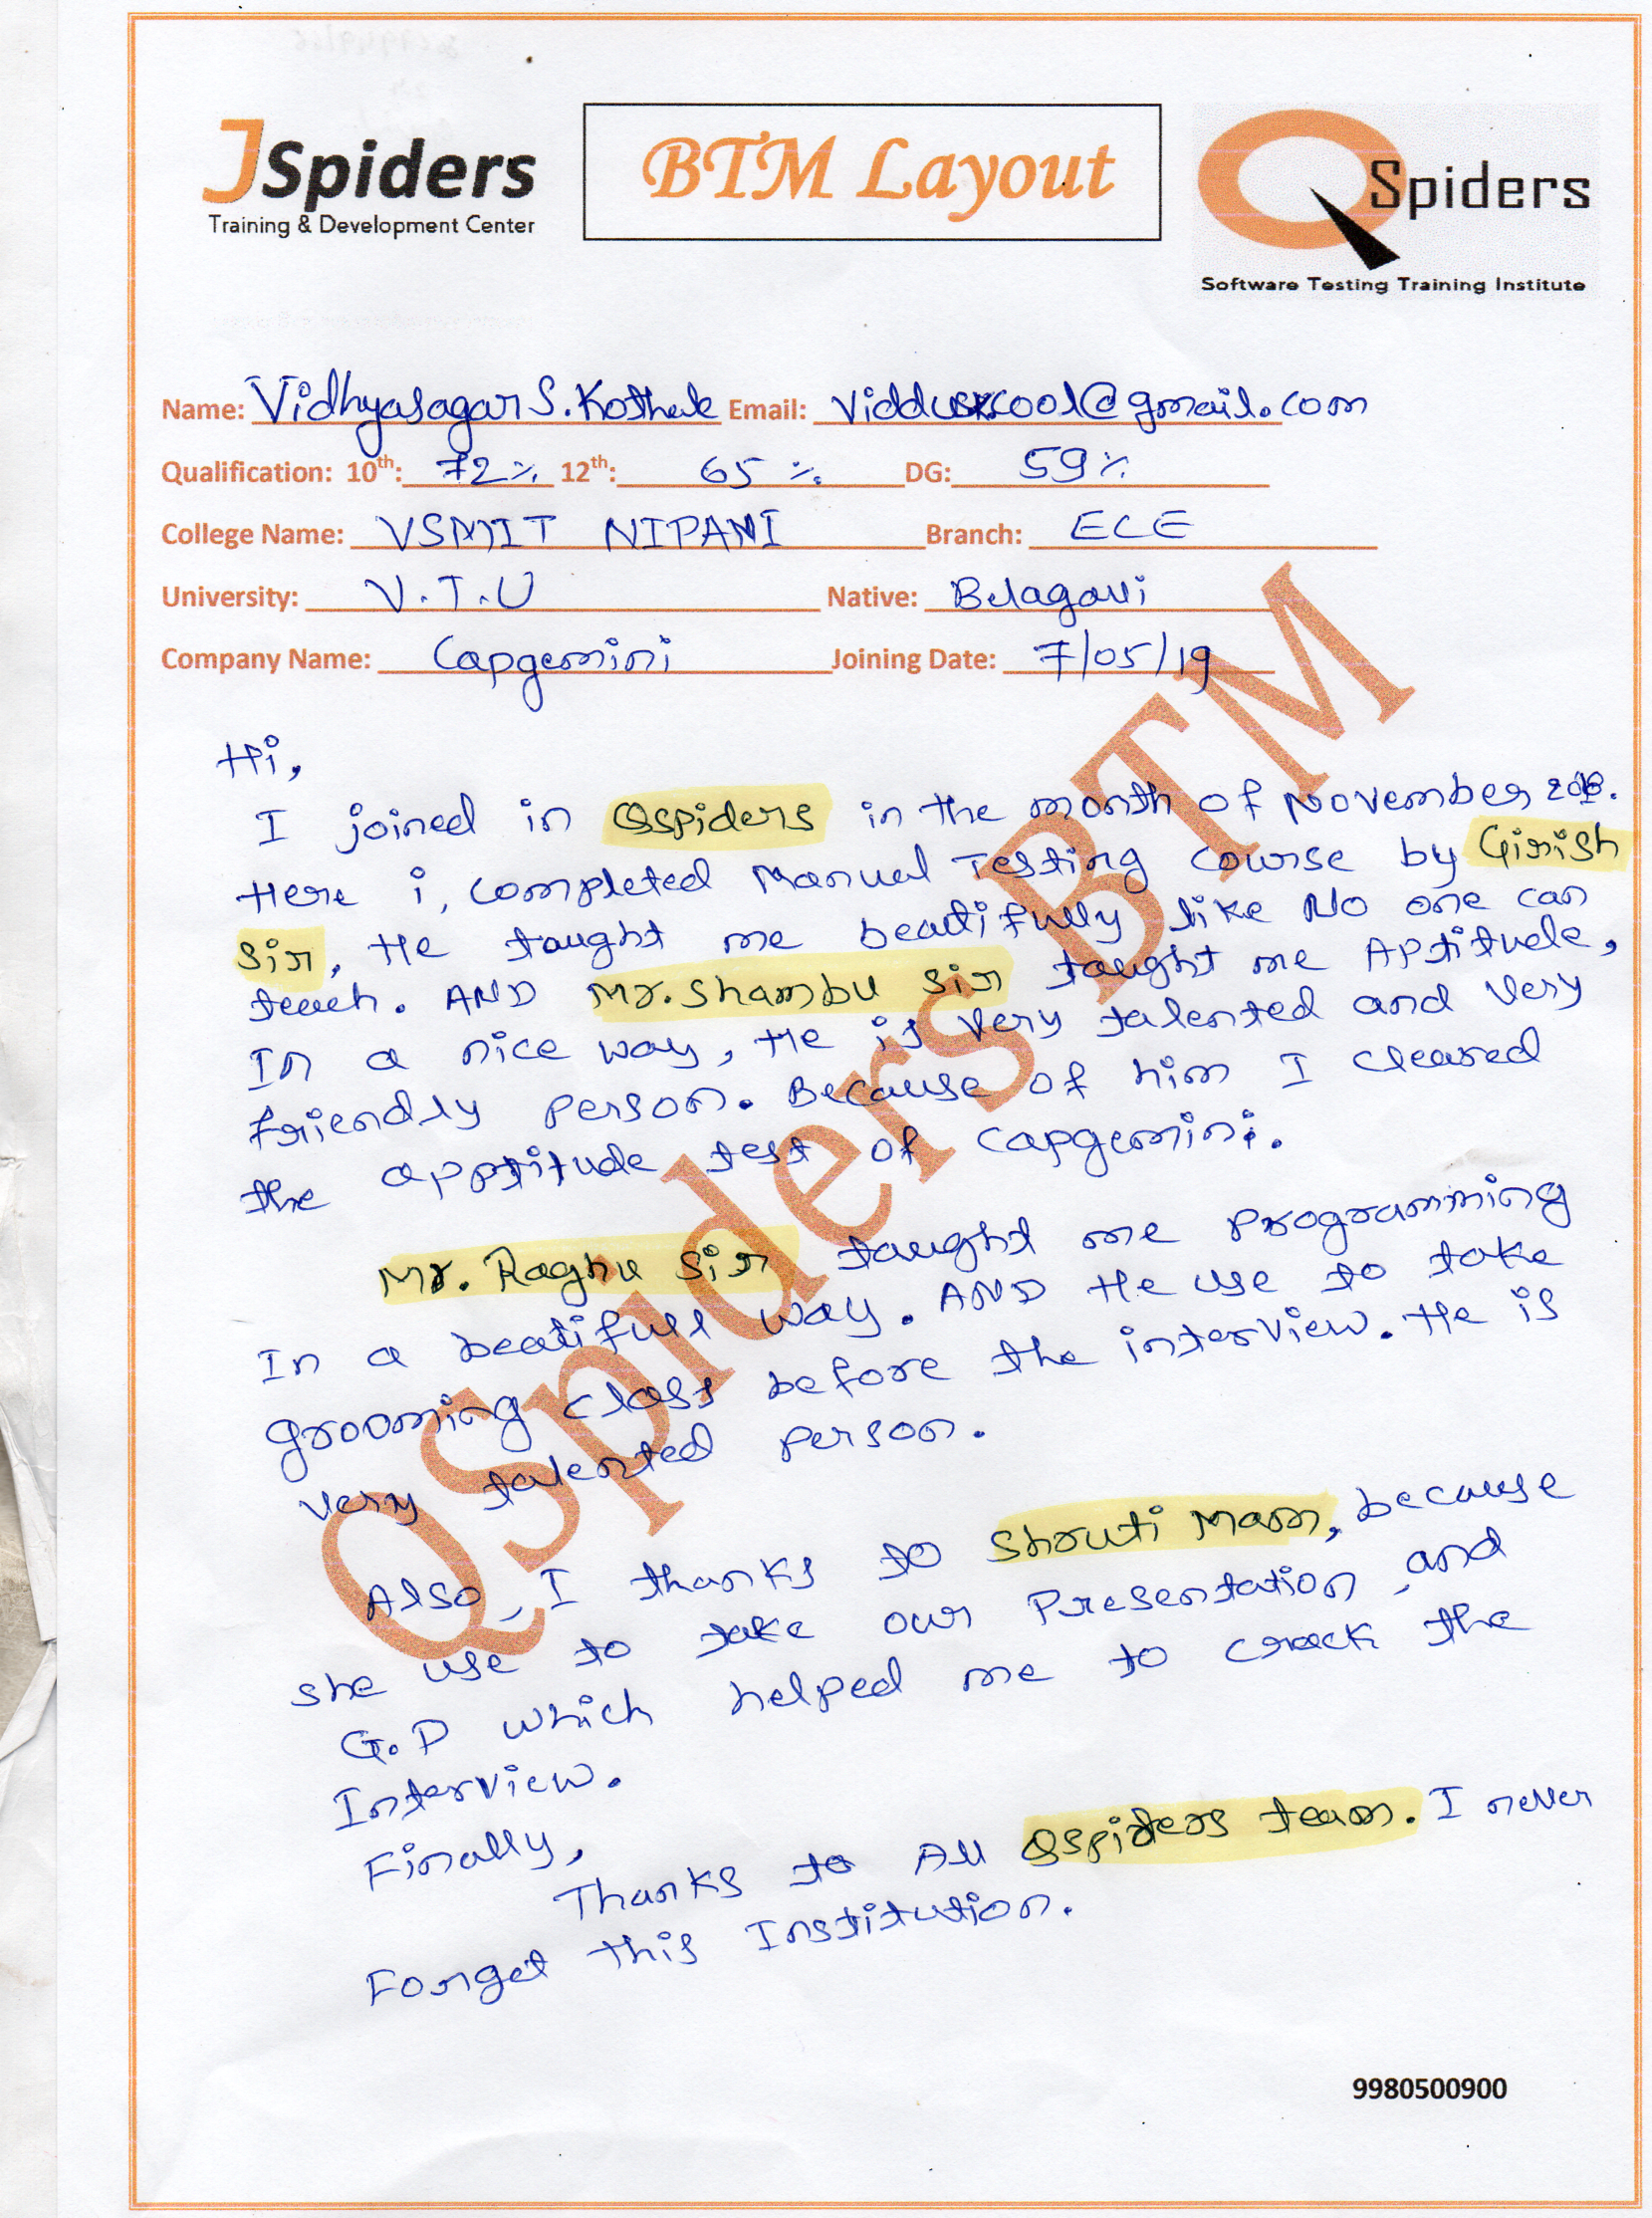 JSpiders
Training & Development Center
BTM Layout
QSpiders
Software Testing Training Institute
Name: Vidhyasagar S. Kothale Email: @gmail.com
Qualification: 10th: 72% 12th: 65 % DG: 59%
College Name: VSMIT NIPANI Branch: ECE
University: V.T.U Native: Belagavi
Company Name: Capgemini Joining Date: 7/05/19
Hi,
I joined in Qspiders in the month of November 2018.
Here i, completed Manual Testing course by Girish
Sir, He taught me beautifully like No one can
teach. AND Mr. Shambu Sir taught me Aptitude,
In a nice way, He is very talented and very
friendly person. Because of him I cleared
the apptitude test of Capgemini.
Mr. Raghu Sir taught me programming
In a beatifull way. AND He use to take
grooming class before the interview. He is
very talented person.
Also, I thanks to Shruti Mam, because
she use to take our Presentation and
G.D which helped me to crack the
Interview.
Finally,
Thanks to All Qspiders team. I never
Forget this Institution.
QSpiders BTM
9980500900